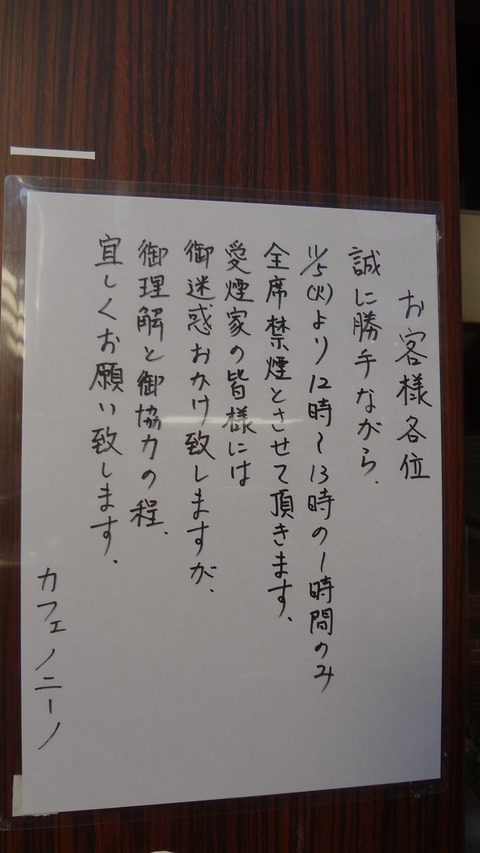 お客様各位
誠に勝手ながら、
11/5(火)より12時~13時の1時間のみ
全席禁煙とさせて頂きます、
愛煙家の皆様には
御迷惑おかけ致しますが、
御理解と御協力の程、
宜しくお願い致します、
カフェノニーノ